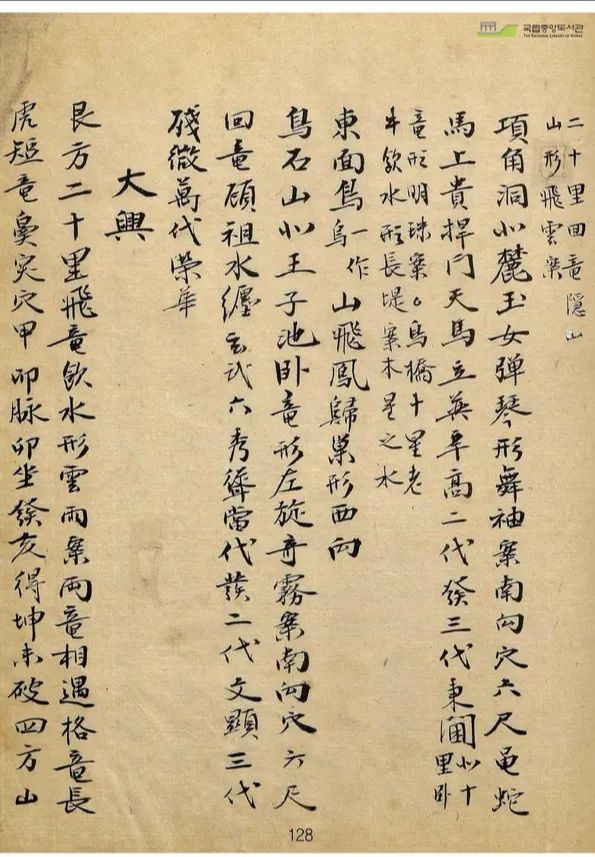 국립중앙도서관
THE NATIONAL LIBRARY OF KOREA
二十里回竜隱山
山形飛雲案
項角洞北麓玉女弹琴形舞袖案南向穴六尺黾蛇
馬上貴捍門天馬立英卓高二代發三代東閫北十
里卧
竜形明珠案烏橋十里老
牛飮水形長堤案木星之水
東面鳥一作烏山飛鳳歸巢形西向
鳥石山北王子池卧竜形左旋奇霧案南向穴六尺
回竜頋祖水纒玄武六秀聳當代發二代文顯三代
殘微萬代榮華
大興
艮方二十里飛竜飮水形雲雨案両竜相遇格竜長
虎短竜鼻突穴甲卯脉卯坐癸亥得坤未破四方山
128